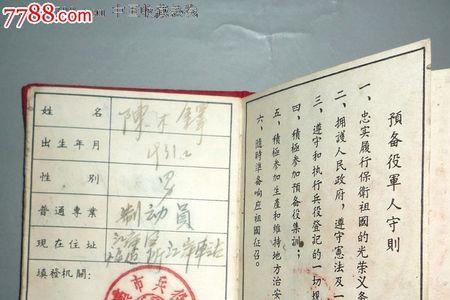 7788.com
中国收藏热线
姓名 陳木鐸
出生年月 1931.2
性别 男
普通專業 制动員
現在住址 江岸車站
填檢機關：
市兵役
預备役軍人守則
一、忠实履行保衛祖國的光荣义务
二、拥護人民政府，遵守憲法及一
三、遵守和执行兵役登記的一切規
四、積極参加預备役集訓；
五、積極参加生產和維持地方治安
六、隨時準备响应祖國征召。